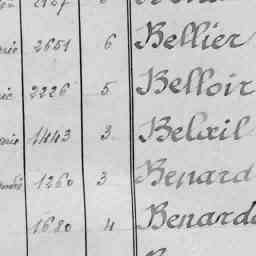 2651 6 Bellier
2226 5 Belloir
1443 3 Belxil
1260 3 Benard
1680 4 Benard